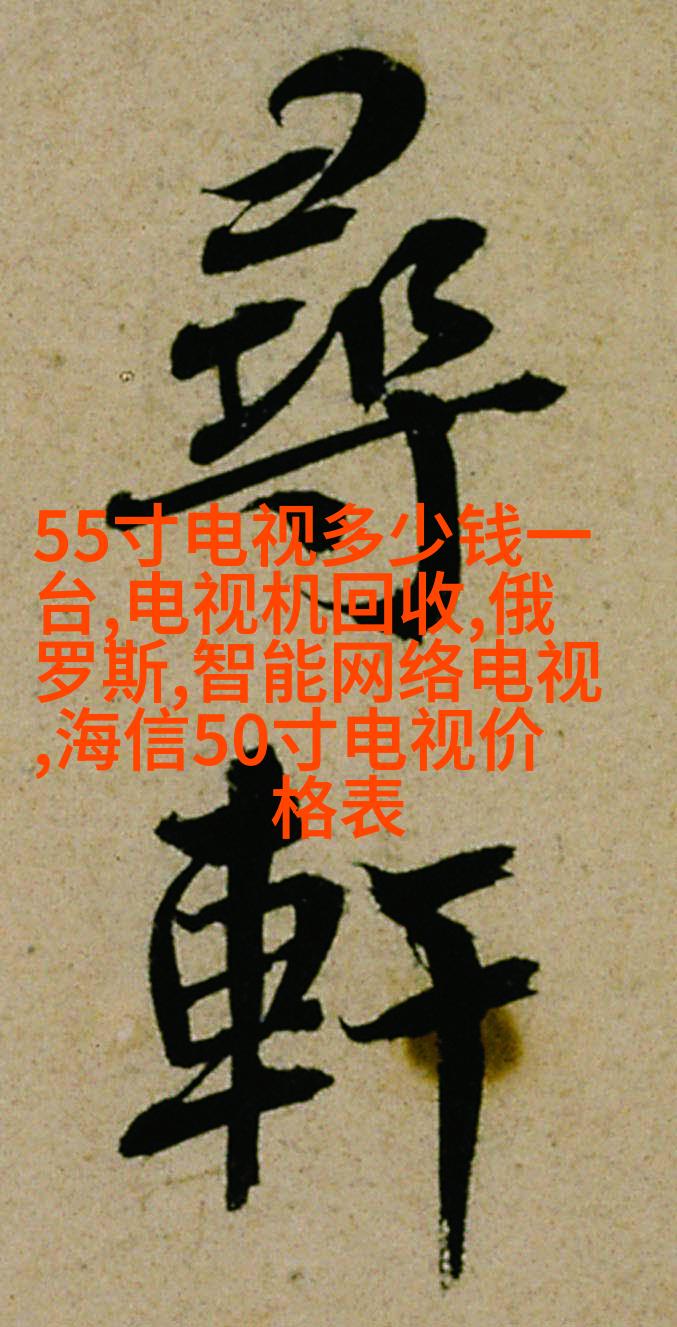 尋
軒
55寸电视多少钱一
台,电视机回收,俄
罗斯,智能网络电视
,海信50寸电视价
格表